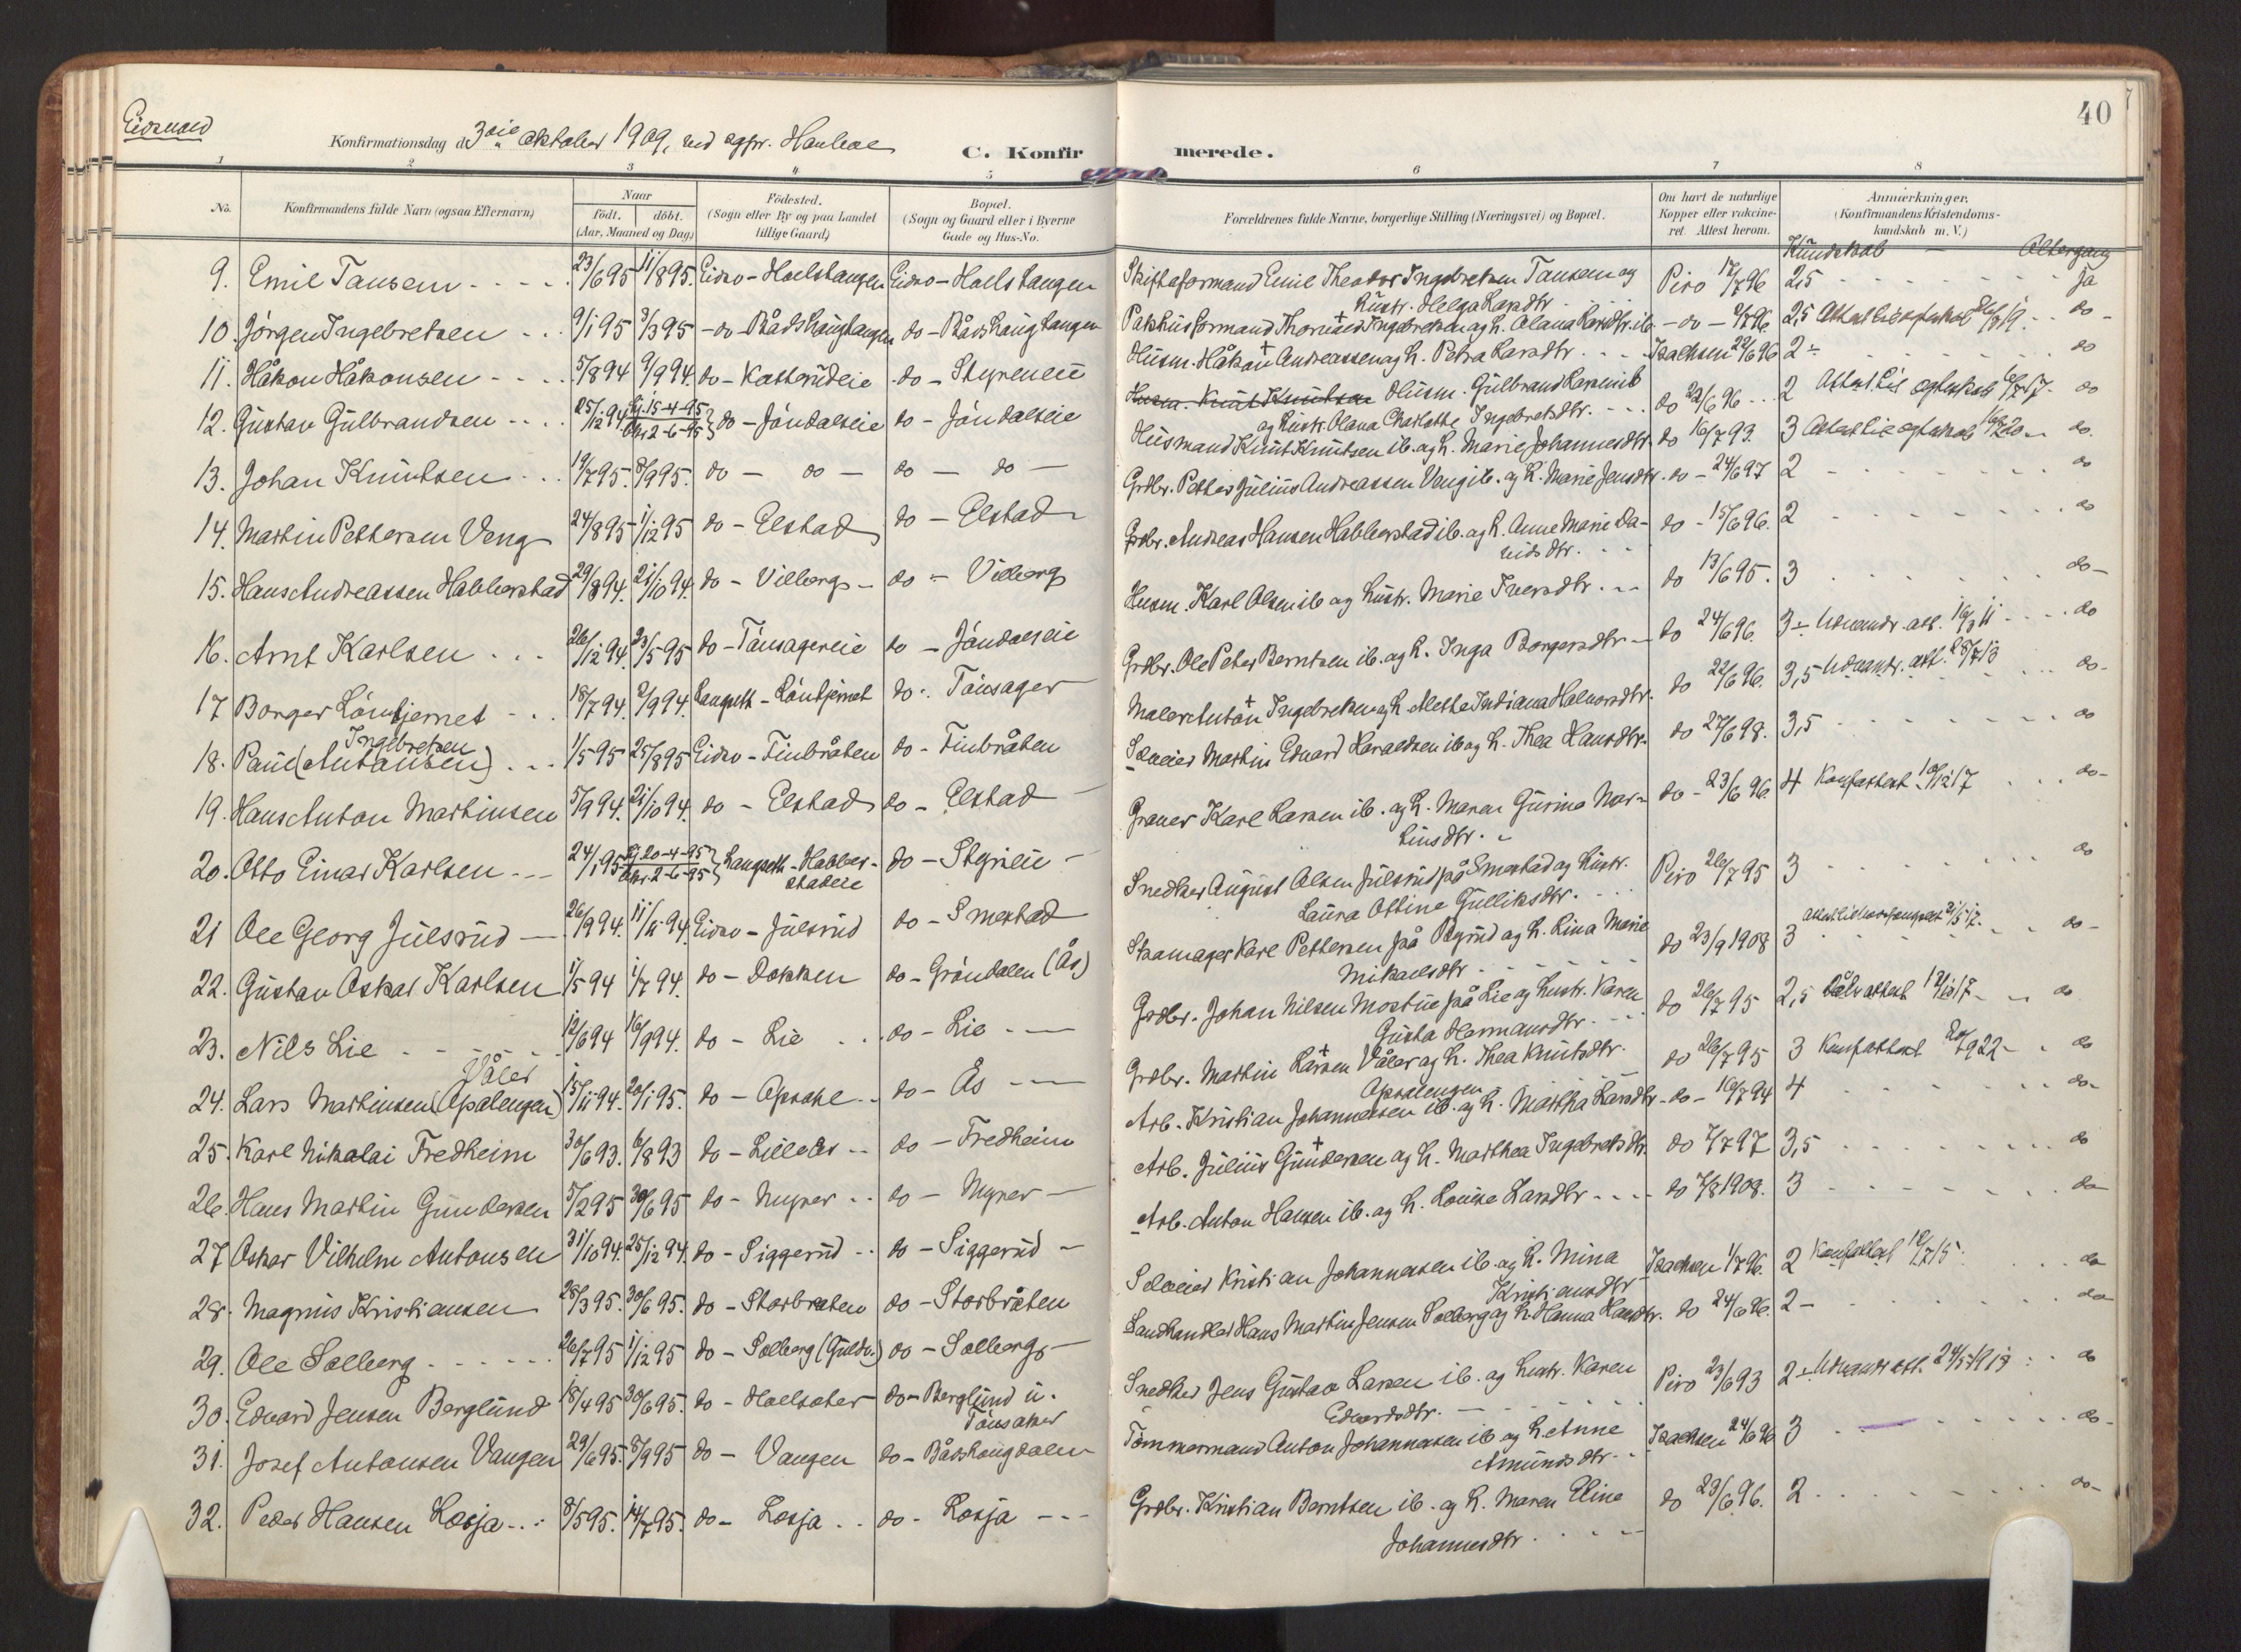 Eidsvold
Konfirmationsdag d. 3die oktober 1909, ved sgpr. Hauboe
C. Konfirmerede.
40
1 2 3 4 5 6 7 8
No.
Konfirmandens fulde Navn (ogsaa Efternavn)
Naar
födt. döbt.
(Aar, Maaned og Dag)
Födested.
(Sogn eller By og paa Landet
tillige Gaard)
Bopæl.
(Sogn og Gaard eller i Byerne
Gade og Hus-No.
Forældrenes fulde Navne, borgerlige Stilling (Næringsvei) og Bopæl.
Om havt de naturlige
Kopper eller vakcine-
ret. Attest herom.
Anmærkninger.
(Konfirmandens Kristendoms-
kundskab m. V.)
Kundskab — Altergang
9. Emil Tansem 23/6 95 11/8 95. Eidsv - Holstangen Eidsv - Holstangen Skifteformand Emil Theodor Ingebretsen Tansem og Hustr. Helga Larsdtr Piro 17/7 96 2,5 Ja
10. Jørgen Ingebretsen 9/1 95 3/3 95 - do - Bådshaugtangen do - Bådshaugtangen Pakhusformand Thorvald Ingebretsen og h. Olava Larsdtr. ib - do - 2/7 96. 2,5 do -
11. Håkon Håkonsen 5/8 94 9/9 94. do - Kasterudeie do - Styrieie Husm. Håkon + Andreassen og h. Petra Larsdtr. Isachsen 22/6 96 2 ÷ do
12. Gustav Gulbrandsen 25/12 94 Hj. 15-4-95 Kirk. 2-6-95 do - Jöndalseie do - Jöndalseie Husm. Knut Knutsen Husm. Gulbrand Larsen ib
og Hustr. Olava Charlotte Ingebretsdtr. do 22/6 96 2 do
13. Johan Knutsen 19/7 95. 8/9 95. do — do — do — do — Husmand Knut Knutsen ib. og h. Marie Johannesdtr. do 16/7 93. 3 do.
14. Martin Pettersen Veng 24/8 95 1/12 95 do - Elstad do - Elstad Grdbr. Petter Julius Andreassen Veng ib. og h. Marie Jensdtr. do - 24/6 97 2 do
15. Hans Andreassen Habberstad 29/8 94. 21/10 94. do - Vilberg - do - Vilberg Grdbr. Andreas Hansen Habberstad ib. og h. Anne Marie Da-
vidsdtr. do - 15/6 96. 2 do
16. Arnt Karlsen 26/12 94. 23/5 95 do - Tönsagereie do - Jöndalseie Husm. Karl Olsen ib og hustr. Marie Iversdtr. do 13/6 95. 3 do -
17 Borger Löntjernet 18/7 94. 2/9 94. Langseth - Löntjernet do. Tönsager Grdbr. Ole Peter Berntsen ib. og h. Inga Borgersdtr - do 24/6 96. 3 ÷ Udvandr. att. 16/3 11 do
Ingebretsen
18. Paul (Antonsen) 1/5 95 25/8 95 Eidsv - Finbråten do - Finbråten Maler Anton + Ingebretsen og h. Mathe Indiana Halvorsdtr. do 22/6 96. 3,5 Udvandr. att. 28/7 13 do -
19. Hans Anton Martinsen 5/9 94. 21/10 94. do - Elstad do - Elstad Selveier Martin Edvard Haraldsen ib og h. Thea Hansdtr. do 27/6 98. 3,5 do
20. Otto Einar Karlsen 24/1 95 Hj 20-4-95 Kir. 2-6-95 Langseth - Habber-
stadeie do - Styrieie - Graver Karl Larsen ib. og h. Maren Gurine Mar-
tinsdtr. do - 23/6 96 4 Konfattest 10/12 17 do -
21 Ole Georg Julsrud 26/9 94. 11/11 94. Eidsv - Julsrud do - Smestad Snedker August Olsen Julsrud på Smestad og hustr.
Laura Ottine Gulliksdtr. Piro 26/7 95 3 do
22. Gustav Oskar Karlsen 1/5 94 1/7 94. do - Dokken do - Gröndalen (Ås) Skomager Karl Pettersen på Byrud og h. Lina Marie
Mikaelsdtr. do 23/9 1908 3 do -
23. Nils Lie 12/6 94 16/9 94. do - Lie do - Lie Grdbr. Johan Nilsen Mostue på Lie og hustr. Karen
Gusta Hermansdtr. do 26/7 95 2,5 do
Våler
24. Lars Martinsen (Opsalengen) 15/11 94. 20/1 95. do - Opsahl do - Ås Grdbr. Martin Larsen + Våler og h. Thea Knutsdtr.
Opsalengen do 26/7 95 3 Konfattest 20/9 22 do
25. Karl Nikolai Fredheim 30/6 93. 6/8 93 do - Lilleås do - Fredheim Arb. Kristian Johannessen ib. og h. Martha Larsdtr. - do - 16/7 94 4 do -
26. Hans Martin Gundersen 5/2 95 30/6 95 do - Myrer do - Myrer — Arb. Julius + Gundersen og h. Marthea Ingebretsdtr. do 7/7 97 3,5 do
27 Oskar Vilhelm Antonsen 31/10 94. 25/12 94. do - Siggerud do - Siggerud - Arb. Anton Hansen ib. og h. Louise Larsdtr do 7/8 1908. 3 do
28. Magnus Kristiansen 28/3 95. 30/6 95. do - Storbråten do - Storbråten Selveier Kristian Johannessen ib. og h. Mina
Kristiansdtr Isachsen 1/7 96. 2 Konfattest 12/7 15 do
29. Ole Solberg 26/7 95 1/12 95 do - Solberg (Guldv.) do - Solberg - Landhandler Hans Martin Jensen Solberg og h. Hanna Hansdtr. do 24/6 96. 2 - do
30. Edvard Jensen Berglund 18/4 95 30/6 95. do - Hollsæter do - Berglund u.
Tönsaker Snedker Jens Gustav Larsen ib. og hustr. Karen
Edvardsdtr. Piro 23/6 93 2 ÷ Udvandr att. 24/5 1913 do
31. Josef Antonsen Vangen 29/6 95. 8/9 95 do - Vangen do - Bådshaugdalen Tömmermand Anton Johannessen ib og h. Anne
Amundsdtr. Isachsen 24/6 96 3 do -
32. Peder Hansen Losja 8/5 95. 14/7 95. do - Losja do - Losja Grdbr. Kristian Berntsen ib. og h. Maren Eline
Johannesdtr do 23/6 96. 2 do -